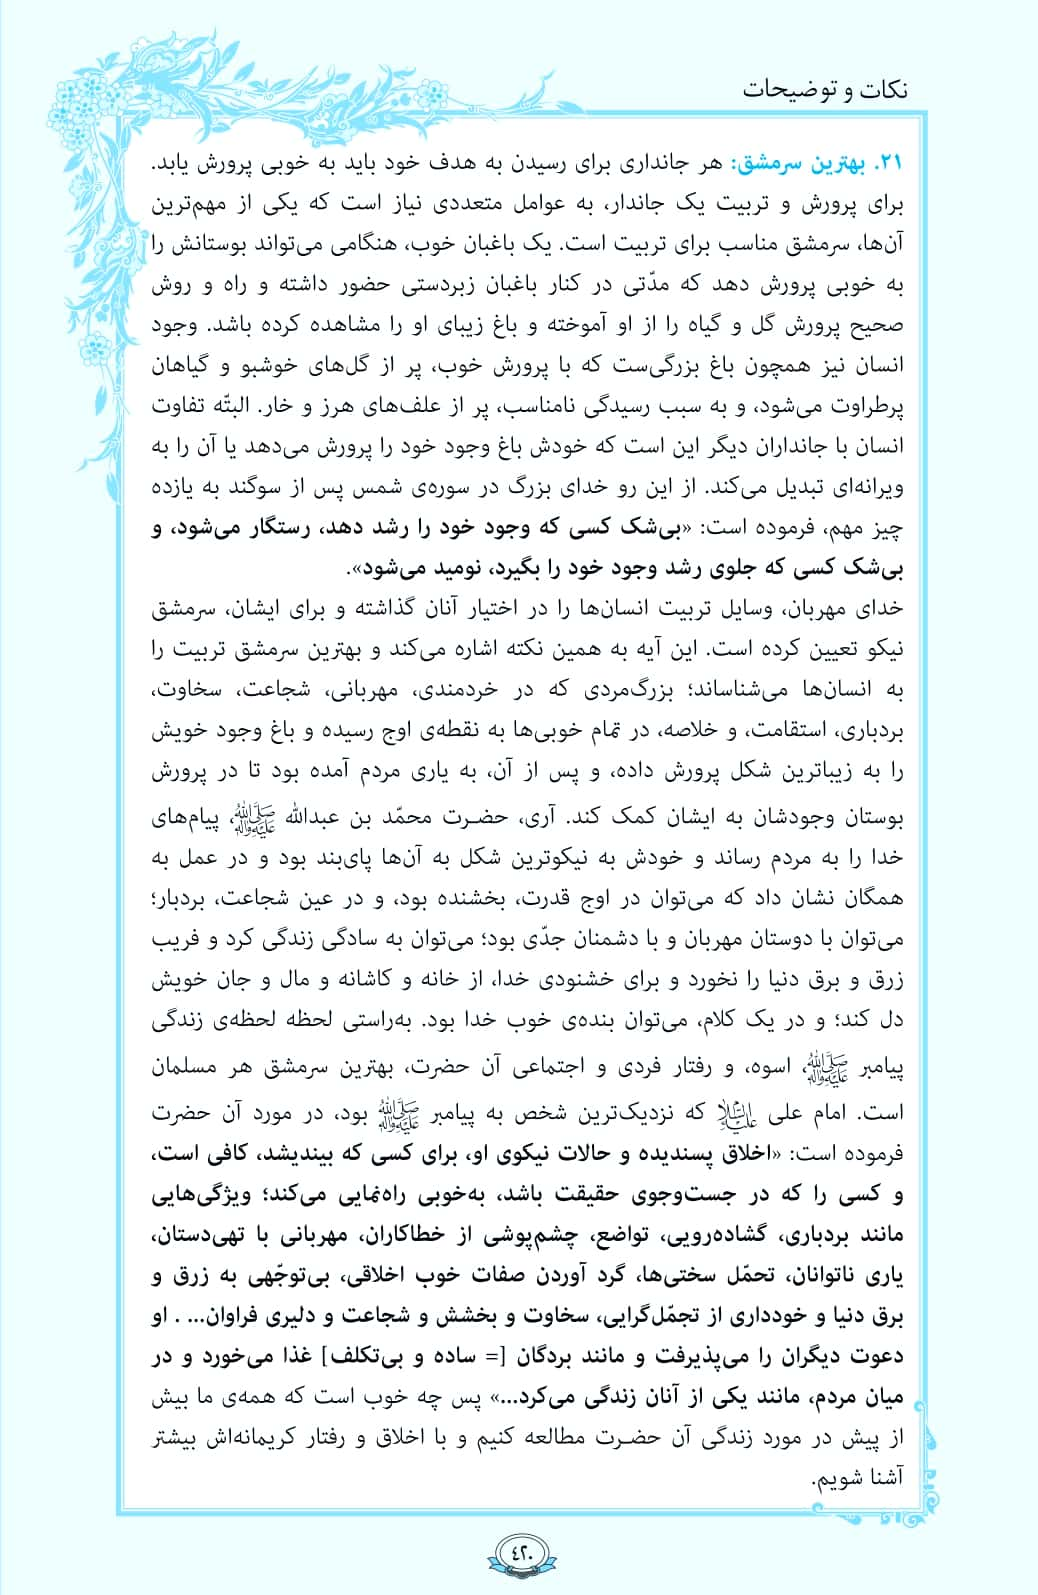 نکات و توضیحات
۲۱. بهترین سرمشق: هر جانداری برای رسیدن به هدف خود باید به خوبی پرورش یابد.
برای پرورش و تربیت یک جاندار، به عوامل متعددی نیاز است که یکی از مهم‌ترین
آن‌ها، سرمشق مناسب برای تربیت است. یک باغبان خوب، هنگامی می‌تواند بوستانش را
به خوبی پرورش دهد که مدّتی در کنار باغبان زبردستی حضور داشته و راه و روش
صحیح پرورش گل و گیاه را از او آموخته و باغ زیبای او را مشاهده کرده باشد. وجود
انسان نیز همچون باغ بزرگی‌ست که با پرورش خوب، پر از گل‌های خوشبو و گیاهان
پرطراوت می‌شود، و به سبب رسیدگی نامناسب، پر از علف‌های هرز و خار. البتّه تفاوت
انسان با جانداران دیگر این است که خودش باغ وجود خود را پرورش می‌دهد یا آن را به
ویرانه‌ای تبدیل می‌کند. از این رو خدای بزرگ در سوره‌ی شمس پس از سوگند به یازده
چیز مهم، فرموده است: «بی‌شک کسی که وجود خود را رشد دهد، رستگار می‌شود، و
بی‌شک کسی که جلوی رشد وجود خود را بگیرد، نومید می‌شود».
خدای مهربان، وسایل تربیت انسان‌ها را در اختیار آنان گذاشته و برای ایشان، سرمشق
نیکو تعیین کرده است. این آیه به همین نکته اشاره می‌کند و بهترین سرمشق تربیت را
به انسان‌ها می‌شناساند؛ بزرگ‌مردی که در خردمندی، مهربانی، شجاعت، سخاوت،
بردباری، استقامت، و خلاصه، در تمام خوبی‌ها به نقطه‌ی اوج رسیده و باغ وجود خویش
را به زیباترین شکل پرورش داده، و پس از آن، به یاری مردم آمده بود تا در پرورش
بوستان وجودشان به ایشان کمک کند. آری، حضرت محمّد بن عبدالله صلی الله علیه و آله، پیام‌های
خدا را به مردم رساند و خودش به نیکوترین شکل به آن‌ها پای‌بند بود و در عمل به
همگان نشان داد که می‌توان در اوج قدرت، بخشنده بود، و در عین شجاعت، بردبار؛
می‌توان با دوستان مهربان و با دشمنان جدّی بود؛ می‌توان به سادگی زندگی کرد و فریب
زرق و برق دنیا را نخورد و برای خشنودی خدا، از خانه و کاشانه و مال و جان خویش
دل کند؛ و در یک کلام، می‌توان بنده‌ی خوب خدا بود. به‌راستی لحظه لحظه‌ی زندگی
پیامبر صلی الله علیه و آله، اسوه، و رفتار فردی و اجتماعی آن حضرت، بهترین سرمشق هر مسلمان
است. امام علی علیه السلام که نزدیک‌ترین شخص به پیامبر صلی الله علیه و آله بود، در مورد آن حضرت
فرموده است: «اخلاق پسندیده و حالات نیکوی او، برای کسی که بیندیشد، کافی است،
و کسی را که در جست‌وجوی حقیقت باشد، به‌خوبی راه‌نمایی می‌کند؛ ویژگی‌هایی
مانند بردباری، گشاده‌رویی، تواضع، چشم‌پوشی از خطاکاران، مهربانی با تهی‌دستان،
یاری ناتوانان، تحمّل سختی‌ها، گرد آوردن صفات خوب اخلاقی، بی‌توجّهی به زرق و
برق دنیا و خودداری از تجمّل‌گرایی، سخاوت و بخشش و شجاعت و دلیری فراوان... . او
دعوت دیگران را می‌پذیرفت و مانند بردگان [= ساده و بی‌تکلف] غذا می‌خورد و در
میان مردم، مانند یکی از آنان زندگی می‌کرد...» پس چه خوب است که همه‌ی ما بیش
از پیش در مورد زندگی آن حضرت مطالعه کنیم و با اخلاق و رفتار کریمانه‌اش بیشتر
آشنا شویم.
۴۲۰